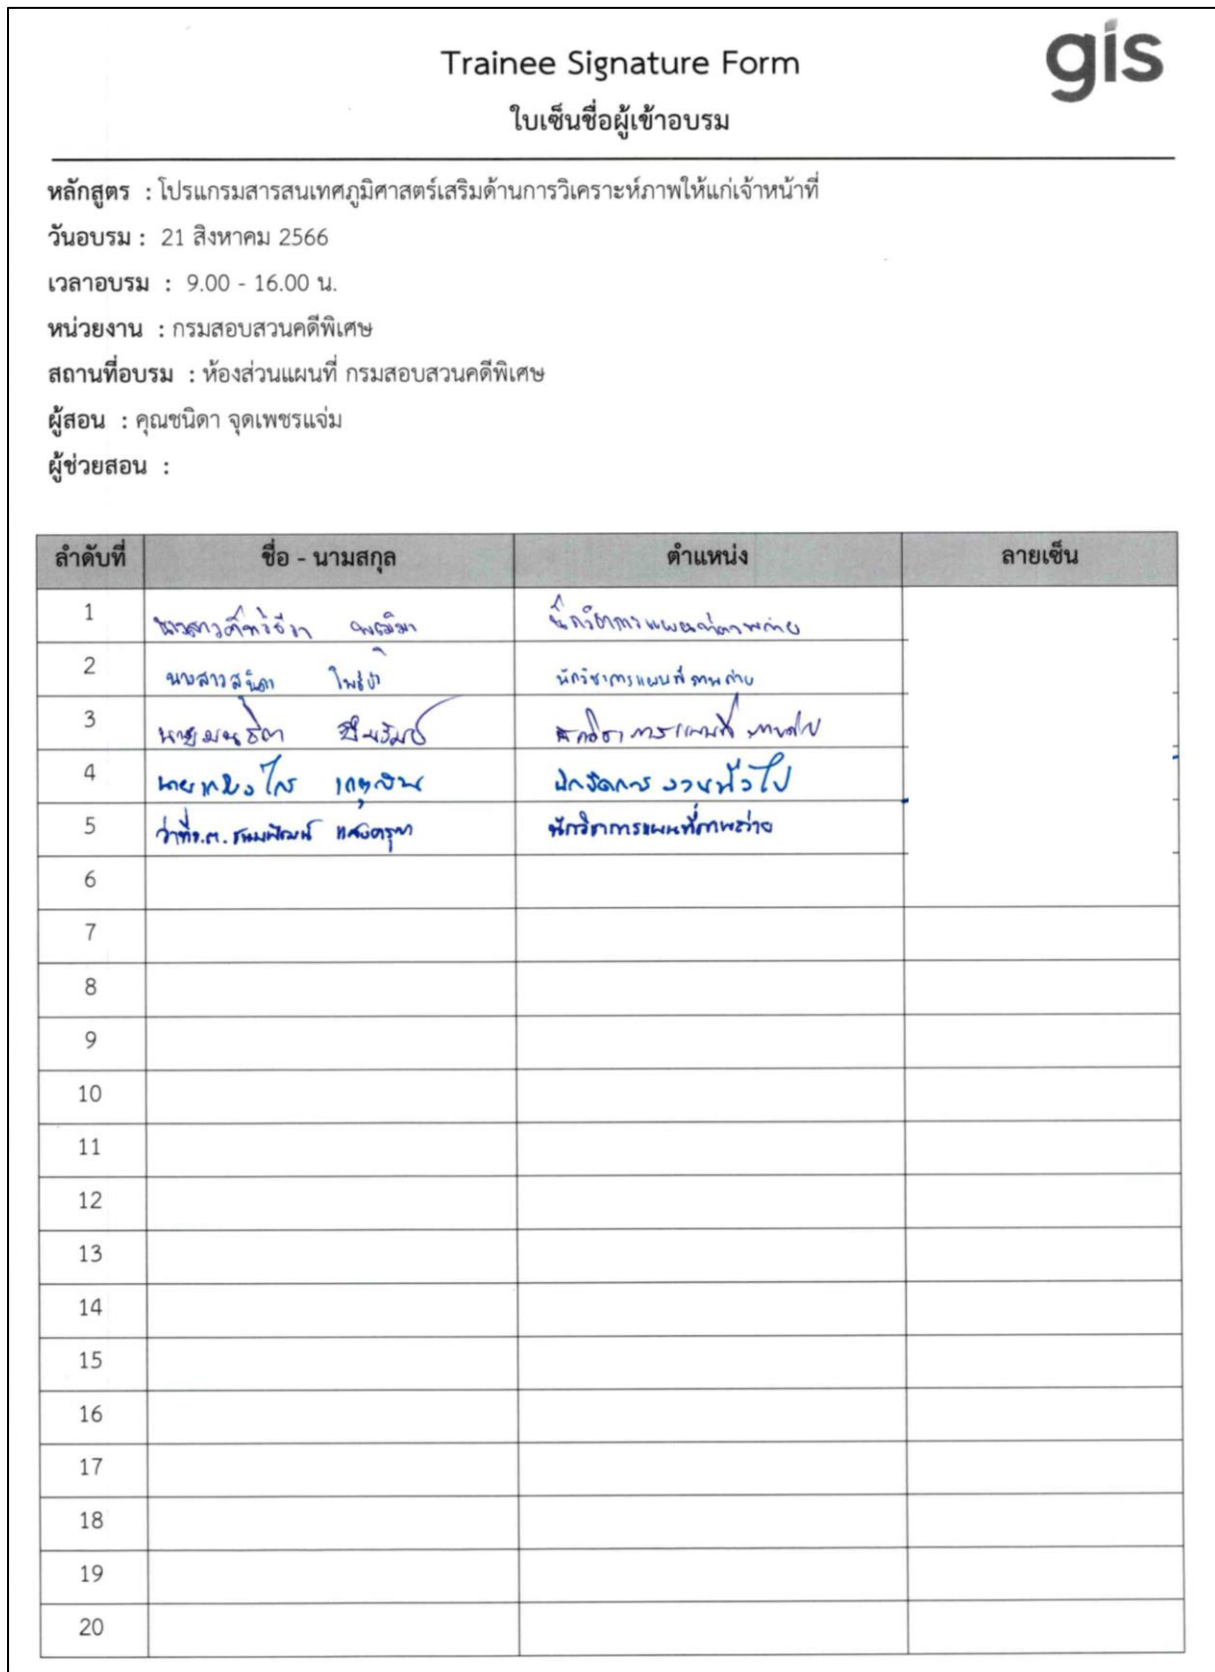 gis
Trainee Signature Form
ใบเซ็นชื่อผู้เข้าอบรม
หลักสูตร : โปรแกรมสารสนเทศภูมิศาสตร์เสริมด้านการวิเคราะห์ภาพให้แก่เจ้าหน้าที่
วันอบรม : 21 สิงหาคม 2566
เวลาอบรม : 9.00 - 16.00 น.
หน่วยงาน : กรมสอบสวนคดีพิเศษ
สถานที่อบรม : ห้องส่วนแผนที่ กรมสอบสวนคดีพิเศษ
ผู้สอน : คุณชนิดา จุดเพชรแจ่ม
ผู้ช่วยสอน :
ลำดับที่ ชื่อ - นามสกุล ตำแหน่ง ลายเซ็น
1 นางสาว นักวิชาการแผนที่ภาพถ่าย
2 นางสาว นักวิชาการแผนที่ภาพถ่าย
3 นาย นักวิชาการแผนที่ภาพถ่าย
4 นาย นักจัดการงานทั่วไป
5 ว่าที่ร.ต. นักวิชาการแผนที่ภาพถ่าย
6
7
8
9
10
11
12
13
14
15
16
17
18
19
20